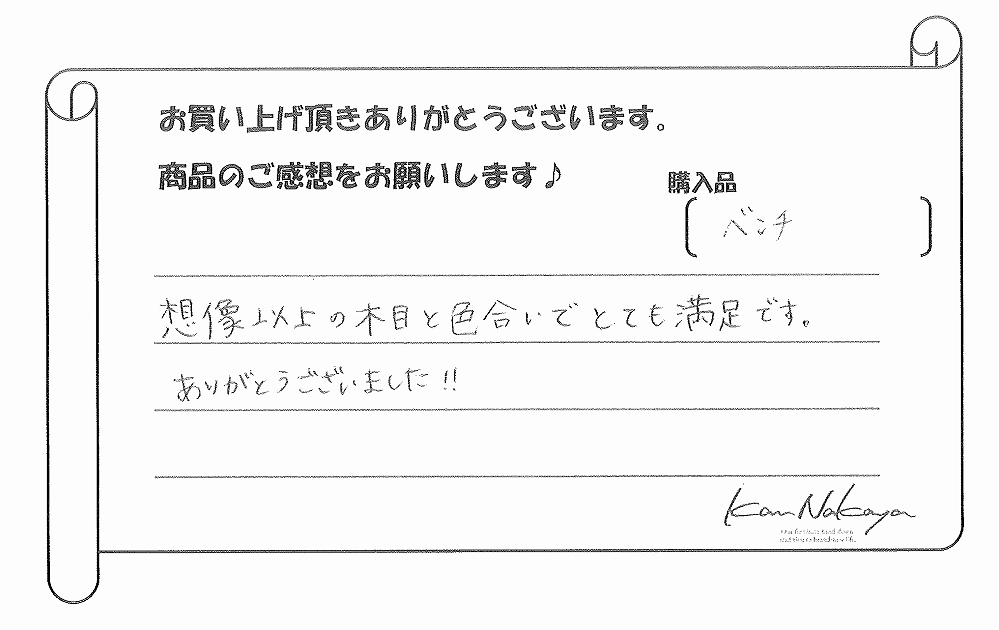 お買い上げ頂きありがとうございます。
商品のご感想をお願いします♪
購入品
ベンチ
想像以上の木目と色合いでとても満足です。
ありがとうございました!!
Kan Nakaya